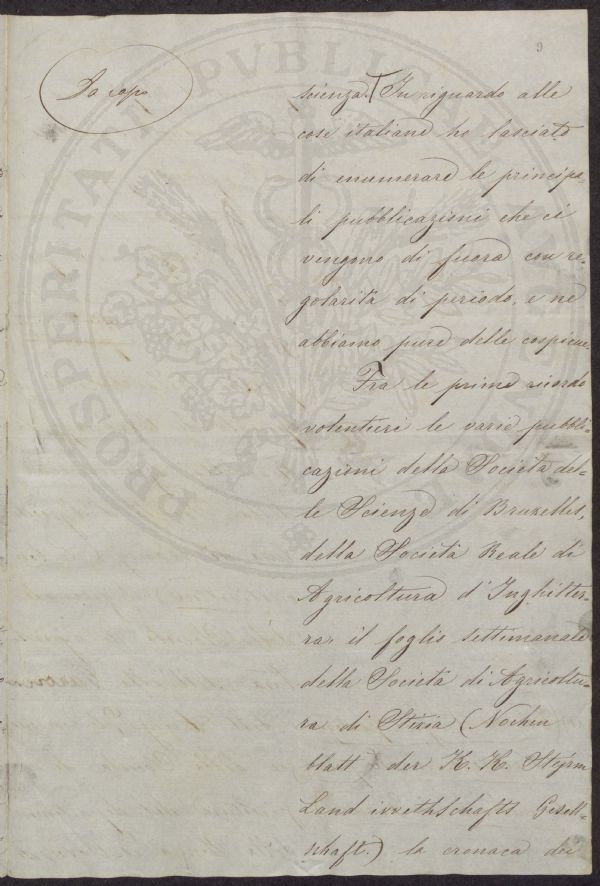 9
Da capo
scienza. In riguardo alle
cose italiane ho lasciato
di enumerare le principa-
li pubblicazioni che ci
vengono di fuora con re-
golarità di periodo, e ne
abbiamo pure delle cospicue.
Fra le prime ricordo
volentieri le varie pubbli-
cazioni della Società del-
le Scienze di Bruxelles,
della Società Reale di
Agricoltura d'Inghilter-
ra, il foglio settimanale
della Società di Agricoltu-
ra di Stiria (Wochen
blatt der K. K. Steyrm
Land irvethschafts Gesell-
schaft.) la cronaca dei
PROSPERITATI PUBLICAE